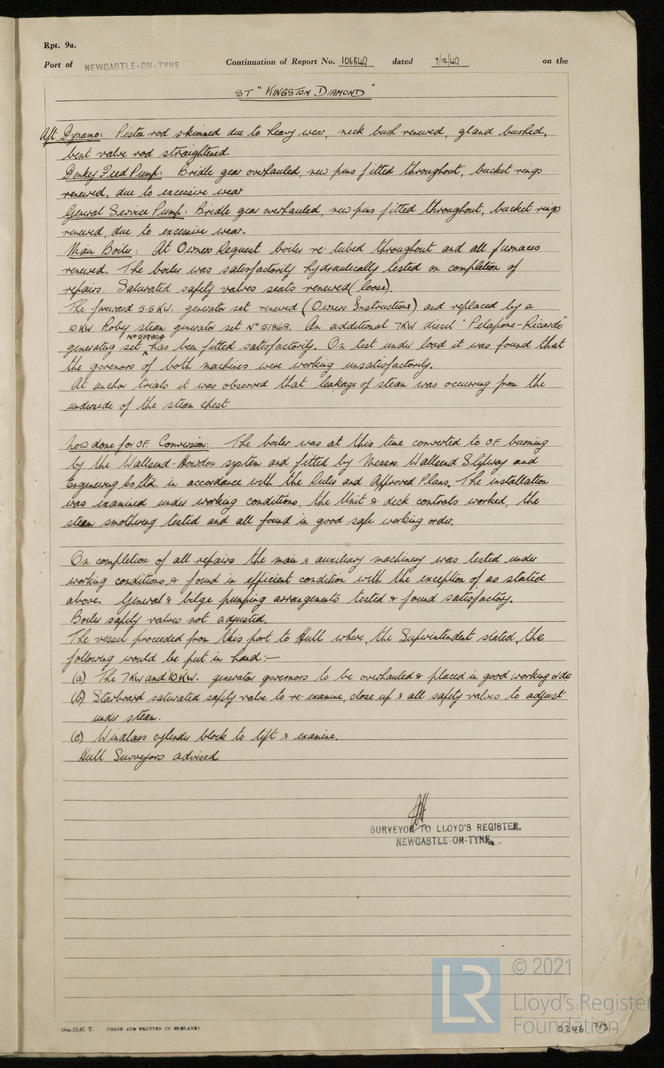 Rpt. 9a.
Port of NEWCASTLE-ON-TYNE Continuation of Report No. dated on the
ST "KINGSTON DIAMOND"
Aft Dynamo: Piston rod skimmed due to heavy wear, neck bush renewed, gland bushed,
bent valve rod straightened
Donkey Feed Pump: Bridle gear overhauled, new pins fitted throughout, bucket rings
renewed, due to excessive wear
General Service Pump: Bridle gear overhauled new pins fitted throughout, bucket rings
renewed, due to excessive wear.
Main Boiler: At Owners Request boiler re-tubed throughout and all furnaces
renewed. The boiler was satisfactorily hydraulically tested on completion of
repairs. Saturated safety valves seats renewed (loose).
The forward 5.5 KW. generator set removed (Owners Instructions) and replaced by a
10 KW Roby steam generator set No 51868. An additional 7KW diesel "Pelapone-Ricardo"
generating set has been fitted satisfactorily. On test under load it was found that
the govenors of both machines were working unsatisfactorily.
At anchor trials it was observed that leakage of steam was occuring from the
underside of the steam chest
Now done for OF. Conversion: The boiler was at this time converted to OF burning
by the Wallsend-Howden system and fitted by Messrs Wallsend Slipway and
Engineering Co Ltd. in accordance with the Rules and Approved Plans. The installation
was examined under working conditions, the Unit & deck controls worked, the
steam smothering tested and all found in good safe working order.
On completion of all repairs the main & auxiliary machinery was tested under
working conditions & found in efficient condition with the exception of as stated
above. General & bilge pumping arrangements tested & found satisfactory.
Boiler safety valves not adjusted.
The vessel proceeded from this port to Hull where, the Superintendent stated, the
following would be put in hand:-
(a) The 7KW and 10KW. generator governors to be overhauled & placed in good working order
(b) Starboard saturated safety valve to re-examine, close up & all safety valves to adjust
under steam.
(c) Windlass cylinder block to lift & examine.
Hull Surveyors advised
SURVEYOR TO LLOYD'S REGISTER.
NEWCASTLE-ON-TYNE.
© 2021
Lloyd's Register
Foundation
(MADE AND PRINTED IN ENGLAND)
0246 2/3